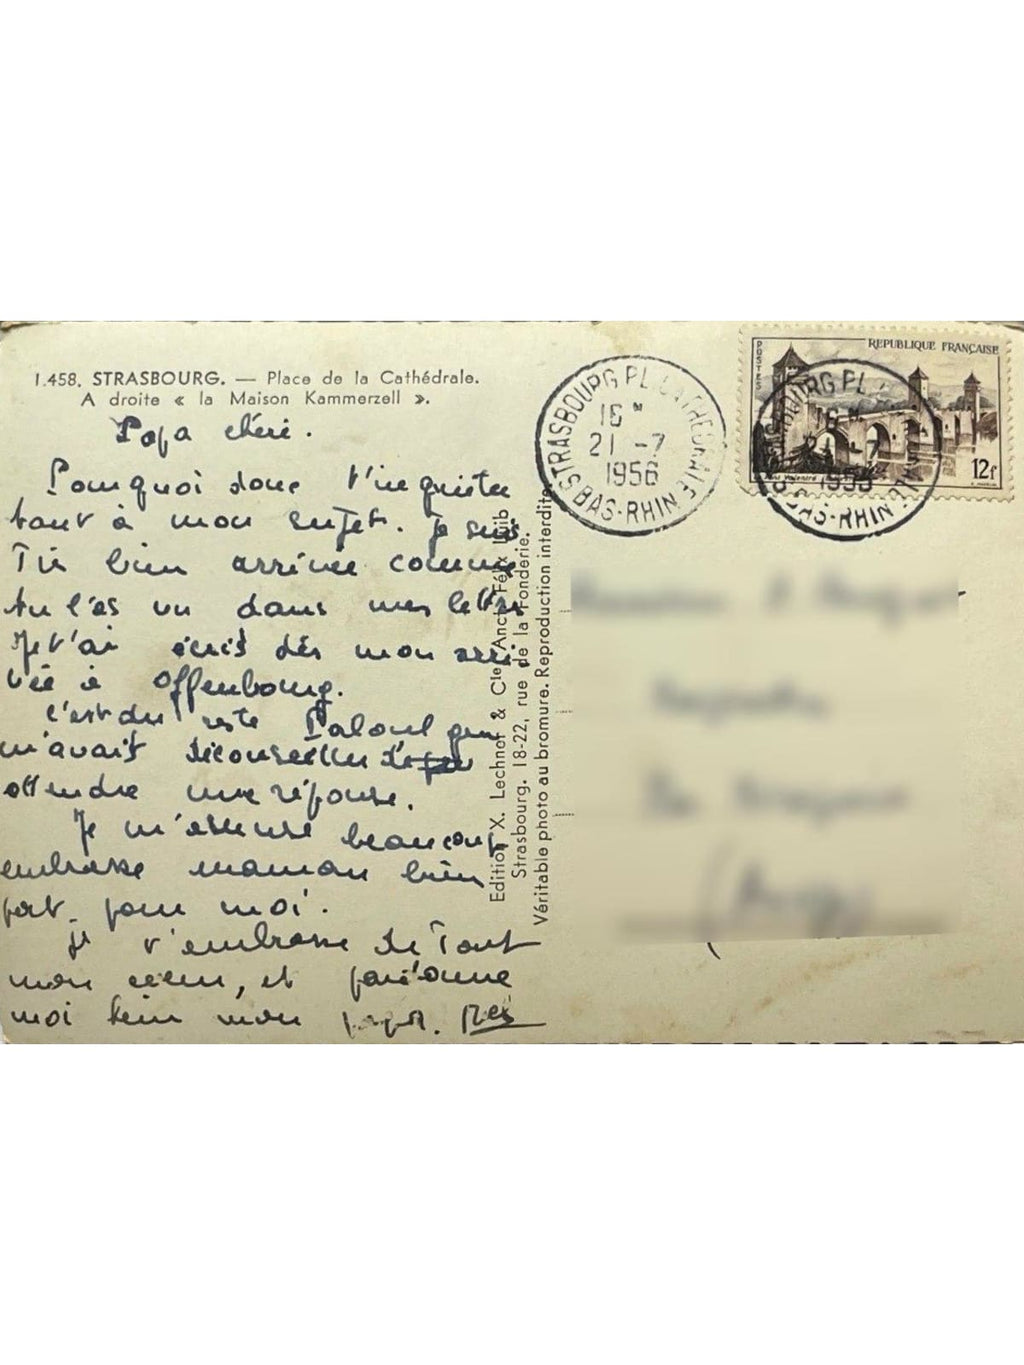 1.458. STRASBOURG. — Place de la Cathédrale.
A droite « la Maison Kammerzell ».
Papa chéri.
Pourquoi donc t'inquieter
tant à mon sujet. Je suis
Très bien arrivée comme
tu l'as vu dans mes lettres
Je t'ai écris dès mon arri
vée à Offenbourg.
C'est du reste
m'avait déconseiller d'
attendre une réponse.
Je m'ennuie beaucoup
embrasse maman bien
fort pour moi.
Je t'embrasse de Tout
mon cœur, et
moi bien mon
Edition X. Lechnot & Cie, Anct Félix Luib
Strasbourg. 18-22, rue de la Fonderie.
Véritable photo au bromure. Reproduction interdite.
STRASBOURG PL. CATHEDRALE
16 H
21 -7
1956
BAS-RHIN
POSTES
REPUBLIQUE FRANÇAISE
12f
STRASBOURG PL. CATHEDRALE
16 H
21 -7
1956
BAS-RHIN